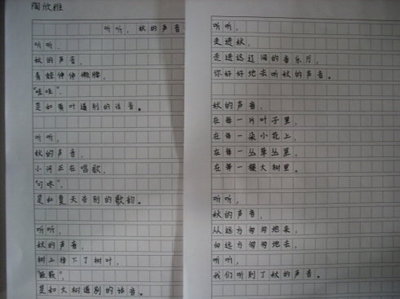 陶欣雅
听听，秋的声音
听听，
秋的声音，
青蛙伸伸懒腰，
“哇哇”，
是和荷叶道别的话音。
听听，
秋的声音，
小河正在唱歌，
是和夏天告别的歌韵。
听听，
秋的声音，
树上掉下了树叶，
是和大树道别的话音。
听听，
走进秋，
走进这辽阔的音乐厅，
你好好地去听秋的声音。
秋的声音，
在每一片叶子里，
在每一朵小花上，
在每一丛草丛里，
在每一棵大树里。
听听，
秋的声音，
从远方匆匆地来，
向远方匆匆地去，
听听，
我们听到了秋的声音。